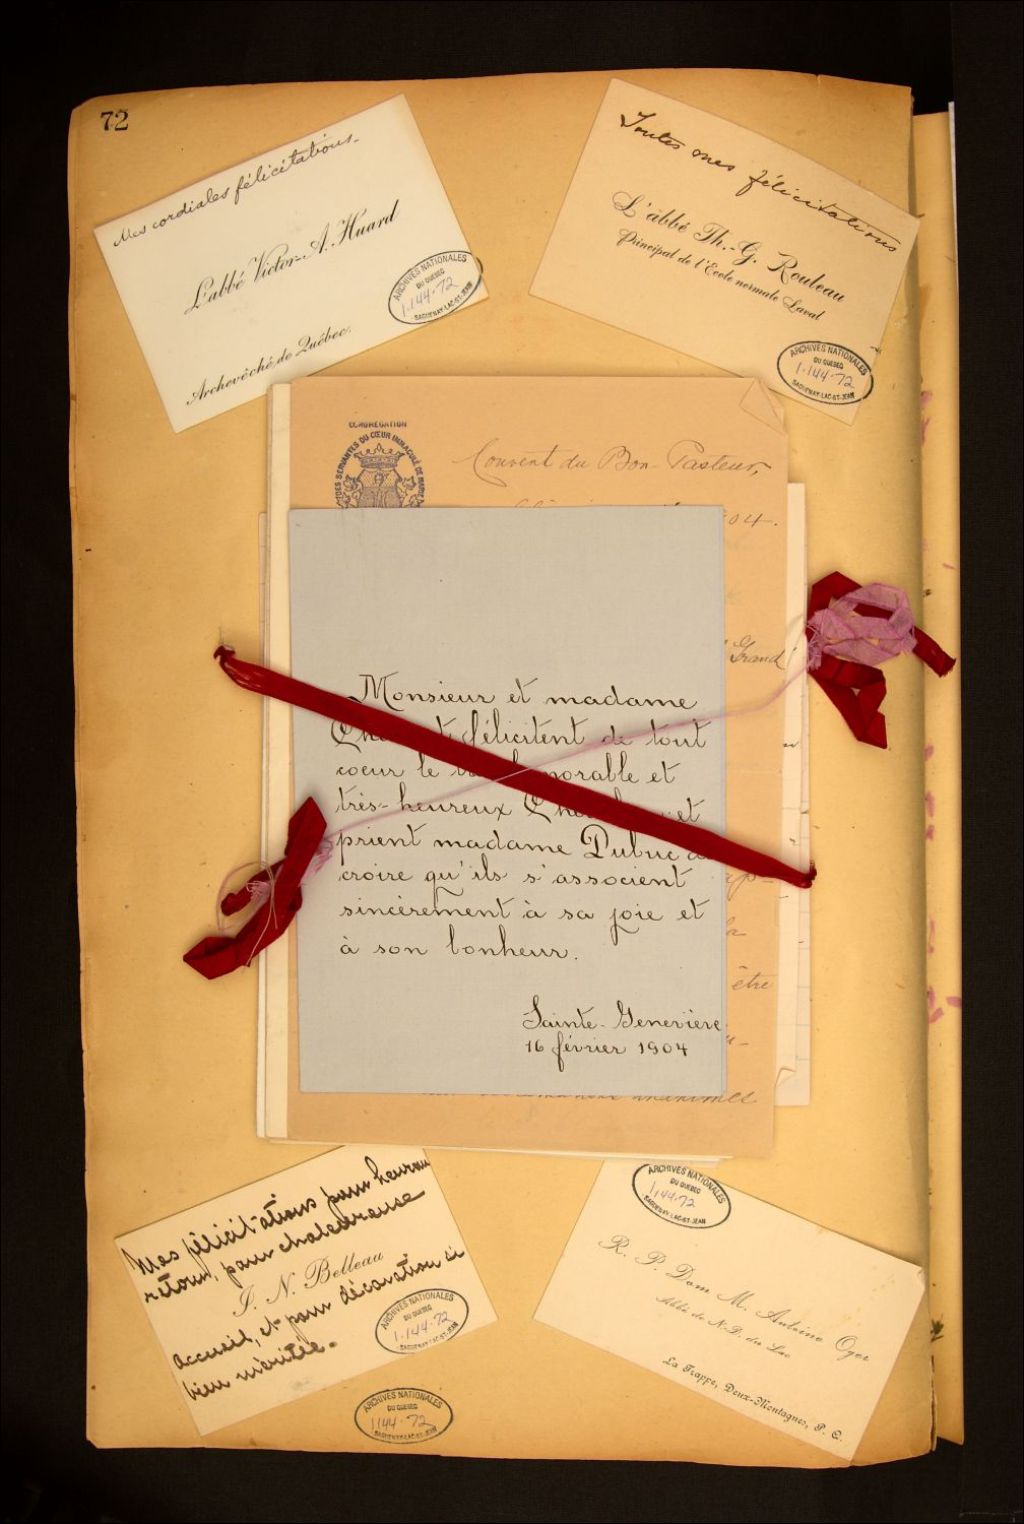 72
Mes cordiales félicitations.
L'abbé Victor-A. Huard
Archevêché de Québec.
ARCHIVES NATIONALES
DU QUEBEC
1-144-72
SAGUENAY-LAC-ST-JEAN
Toutes mes félicitations
L'abbé Th.-G. Rouleau
Principal de l'Ecole normale Laval
ARCHIVES NATIONALES
DU QUEBEC
1-144-72
SAGUENAY-LAC-ST-JEAN
CONGRÉGATION
DES SERVANTES DU CŒUR IMMACULÉ DE MARIE
Couvent du Bon-Pasteur,
04.
Grand
la
être
Monsieur et madame
félicitent de tout
coeur le et
très-heureux et
prient madame Dubuc
croire qu'ils s'associent
sincèrement à sa joie et
à son bonheur.
Sainte-Geneviève
16 février 1904
Mes félicitations pour heureux
retour, pour chaleureuse
J. N. Belleau
accueil, et pour décoration si
bien méritée.
ARCHIVES NATIONALES
DU QUEBEC
1-144-72
SAGUENAY-LAC-ST-JEAN
ARCHIVES NATIONALES
DU QUEBEC
1144-72
SAGUENAY-LAC-ST-JEAN
ARCHIVES NATIONALES
DU QUEBEC
1,144-72
SAGUENAY-LAC-ST-JEAN
R. P. Dom M. Antoine Oger
Abbé de N.-D. du Lac
La Trappe, Deux-Montagnes, P. Q.